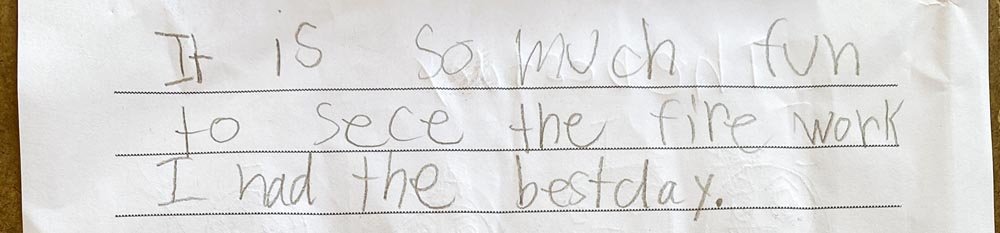 It is so much fun
to sece the fire work
I had the bestday.